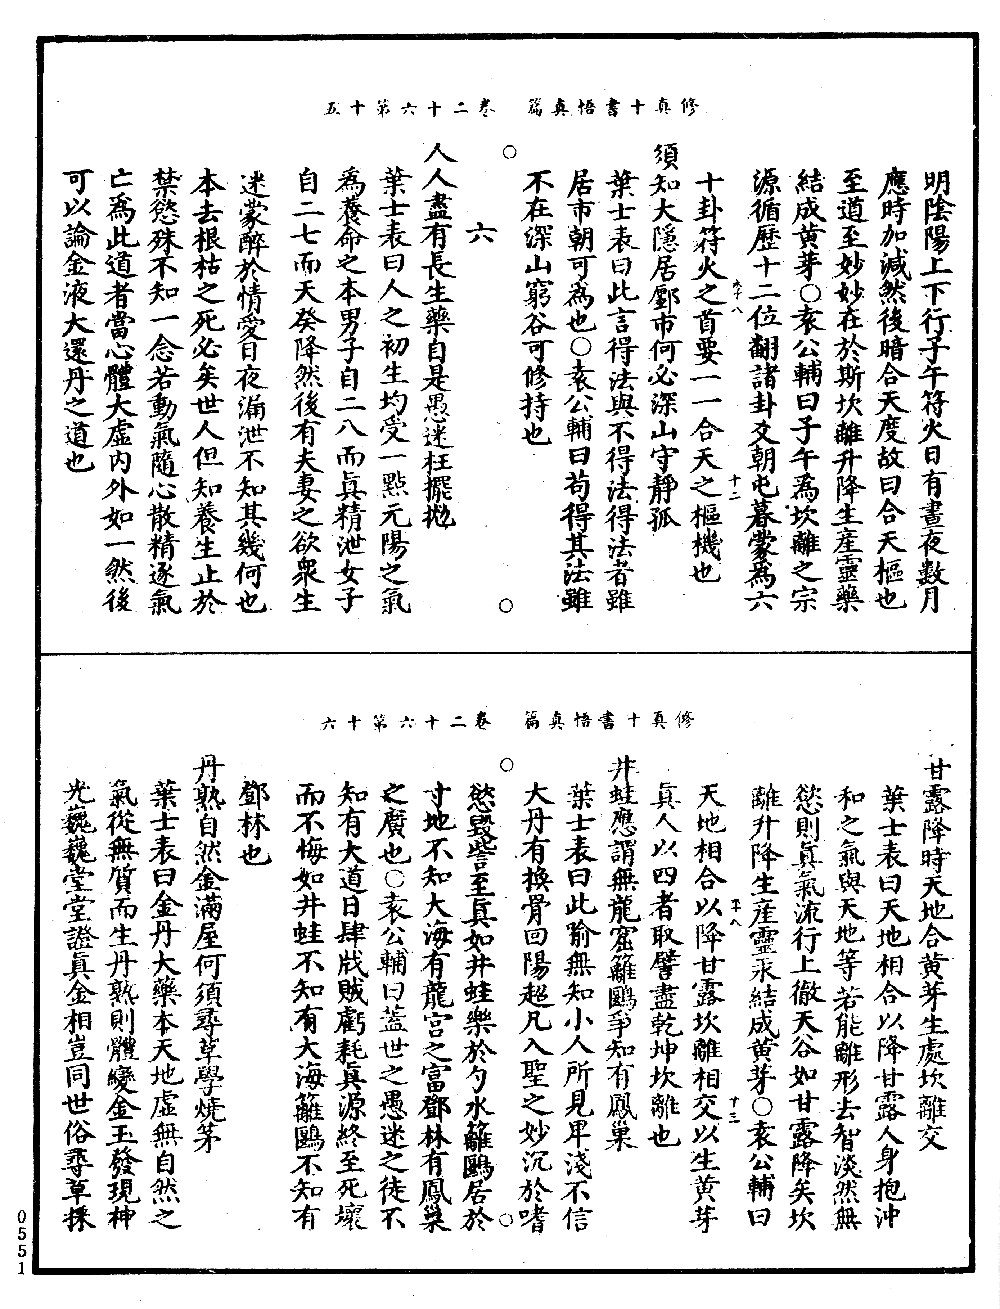 修真十書悟真篇　卷二十六第十五
明陰陽上下行子午符火日有晝夜數月
應時加減然後暗合天度故曰合天樞也
至道至妙妙在於斯坎離升降生產靈藥
結成黃芽○袁公輔曰子午為坎離之宗
源循歷十二位翻諸卦爻朝屯暮蒙為六
十卦符火之首要一一合天之樞機也
須知大隱居鄽市何必深山守靜孤
葉士表曰此言得法與不得法得法者雖
居市朝可為也○袁公輔曰苟得其法雖
不在深山窮谷可修持也
六
人人盡有長生藥自是愚迷枉擺拋
葉士表曰人之初生均受一點元陽之氣
為養命之本男子自二八而真精泄女子
自二七而天癸降然後有夫妻之欲眾生
迷蒙醉於情愛日夜漏泄不知其幾何也
本去根枯之死必矣世人但知養生止於
禁慾殊不知一念若動氣隨心散精逐氣
亡為此道者當心體大虛內外如一然後
可以論金液大還丹之道也
修真十書悟真篇　卷二十六第十六
甘露降時天地合黃芽生處坎離交
葉士表曰天地相合以降甘露人身抱沖
和之氣與天地等若能離形去智淡然無
慾則真氣流行上徹天谷如甘露降矣坎
離升降生產靈汞結成黃芽○袁公輔曰
天地相合以降甘露坎離相交以生黃芽
真人以四者取譬盡乾坤坎離也
井蛙應謂無龍窟籬鷃爭知有鳳巢
葉士表曰此喻無知小人所見卑淺不信
大丹有換骨回陽超凡入聖之妙沉於嗜
慾毀訾至真如井蛙樂於勺水籬鷃居於
寸地不知大海有龍宮之富鄧林有鳳巢
之廣也○袁公輔曰蓋世之愚迷之徒不
知有大道日肆戕賊虧耗真源終至死壞
而不悔如井蛙不知有大海籬鷃不知有
鄧林也
丹熟自然金滿屋何須尋草學燒茅
葉士表曰金丹大藥本天地虛無自然之
氣從無質而生丹熟則體變金玉發現神
光巍巍堂堂證真金相豈同世俗尋草採
0551